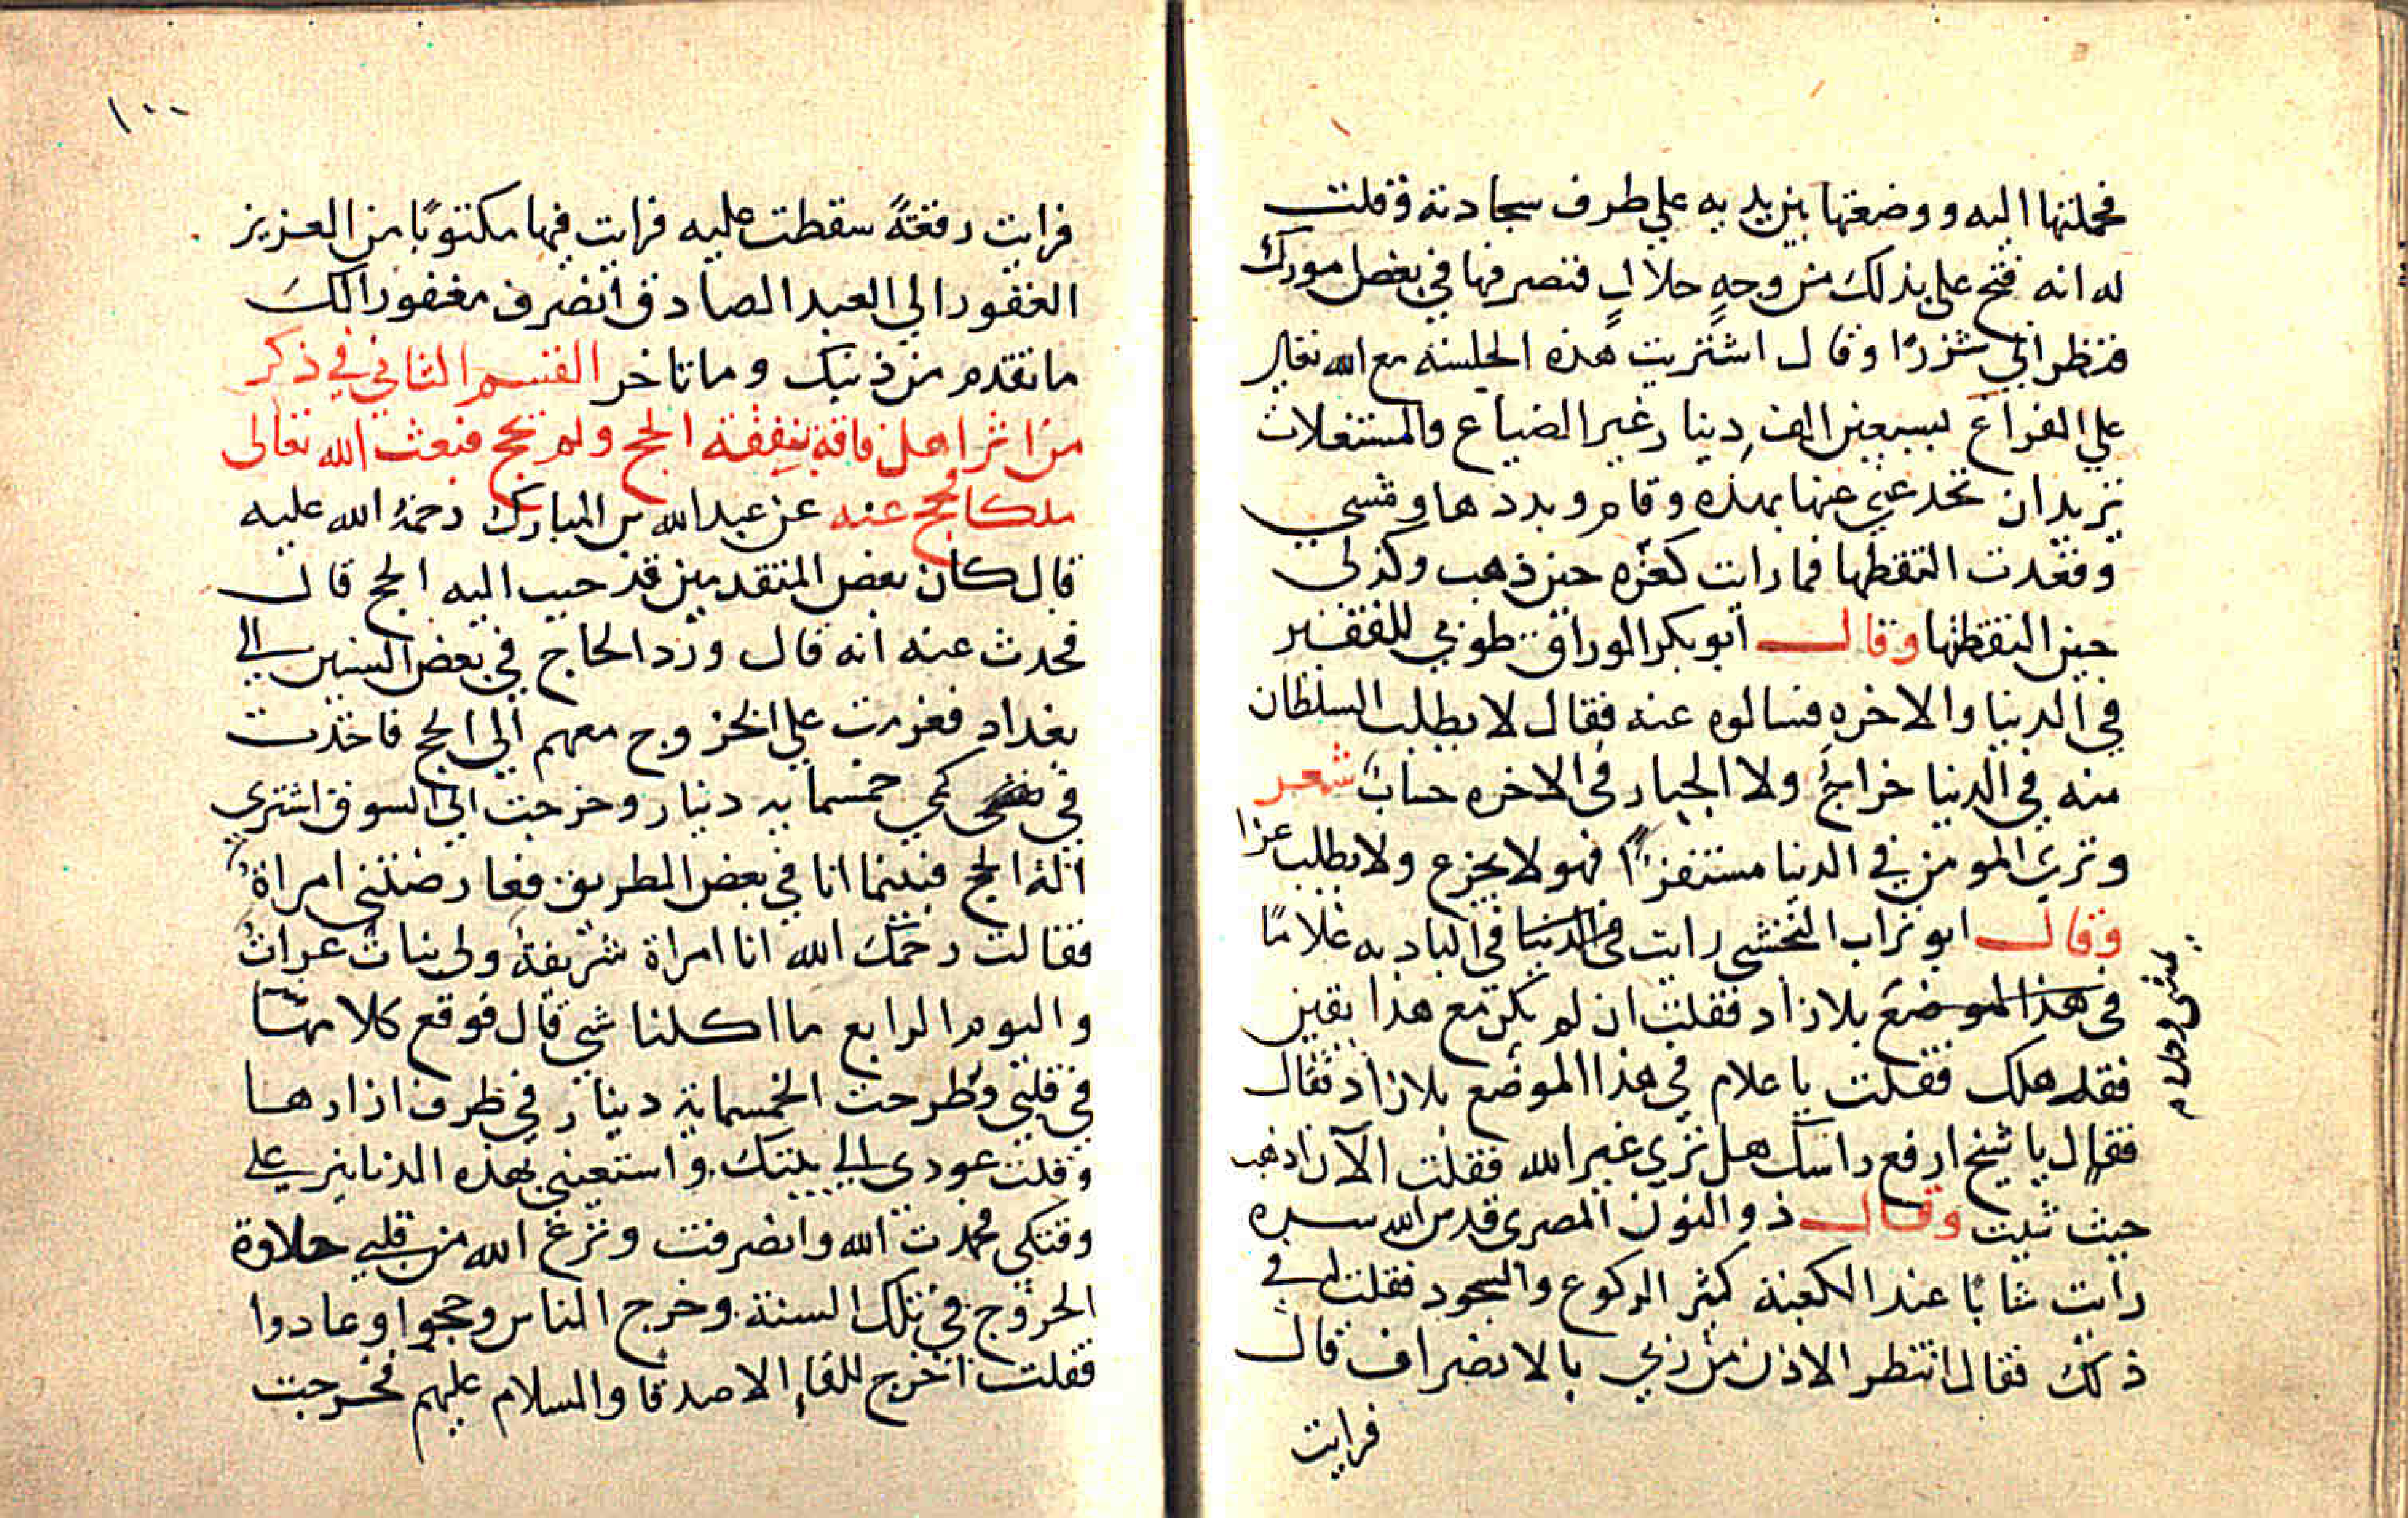 فحملتها اليه ووضعتها بين يديه علي طرف سجادته وقلت
له انه فتح علي بذلك من وجه حلال فتصرفها في بعض امورك
فنظر الي شزرا وقال اشتريت هذه الجلسة مع الله تعالى
علي الفراغ بسبعين الف دينار غير الضياع والمستغلات
تريد ان تخدعني عنها بهذه وقام وبددها ومشي
وقعدت التقطها فما رايت كعزه حين ذهب وكذلي
حين التقطتها وقال ابو بكر الوراق طوبي للفقير
في الدنيا والاخره فسالوه عنه فقال لا يطلب السلطان
منه في الدنيا خراج ولا الجبار في الاخره حساب شعر
وتري المومن في الدنيا مستفزا فهو لا يجزع ولا يطلب عزا
وقال ابو تراب النخشي رايت في الدنيا في الباديه غلامًا
يمشي وحده
في هذا الموضع بلا زاد فقلت ان لم يكن مع هذا يقين
فقد هلك فقلت يا غلام في هذا الموضع بلا زاد فقال
فقال يا شيخ ارفع راسك هل تري غير الله فقلت الآن اذهب
حيث شيت وقال ذو النون المصري قدس الله سره
رايت شابًا عند الكعبة كثير الركوع والسجود فقلت له في
ذلك فقال انتظر الاذن من ربي بالانصراف قال
فرايت
١٠٠
فرايت رقعةً سقطت عليه فرايت فيها مكتوبًا من العزيز
الغفور الي العبد الصادق انصرف مغفورا لك
ما تقدم من ذنبك وما تاخر القسم الثاني في ذكر
من اثر اهل فاقة بنفقة الحج ولم يحج فبعث الله تعالى
ملكا يحج عنه عن عبد الله بن المبارك رحمة الله عليه
قال كان بعض المتقدمين قد حبب اليه الحج قال
فحدث عنه انه قال ورد الحاج في بعض السنين الي
بغداد فعزمت علي الخروج معهم الي الحج فاخذت
في كمي خمسمايه دينار وخرجت الي السوق اشتري
الة الحج فبينما انا في بعض الطريق فعارضتني امراة
فقالت رحمك الله انا امراة شريفة ولي بنات عراة
واليوم الرابع ما اكلنا شي قال فوقع كلامها
في قلبي وطرحت الخمسماية دينار في طرف ازارها
وقلت عودي الي بيتك واستعيني بهذه الدنانير علي
وقتكي فحمدت الله وانصرفت ونزع الله من قلبي حلاوة
الخروج في تلك السنة وخرج الناس وحجوا وعادوا
فقلت اخرج للقاء الاصدقا والسلام عليهم فخرجت